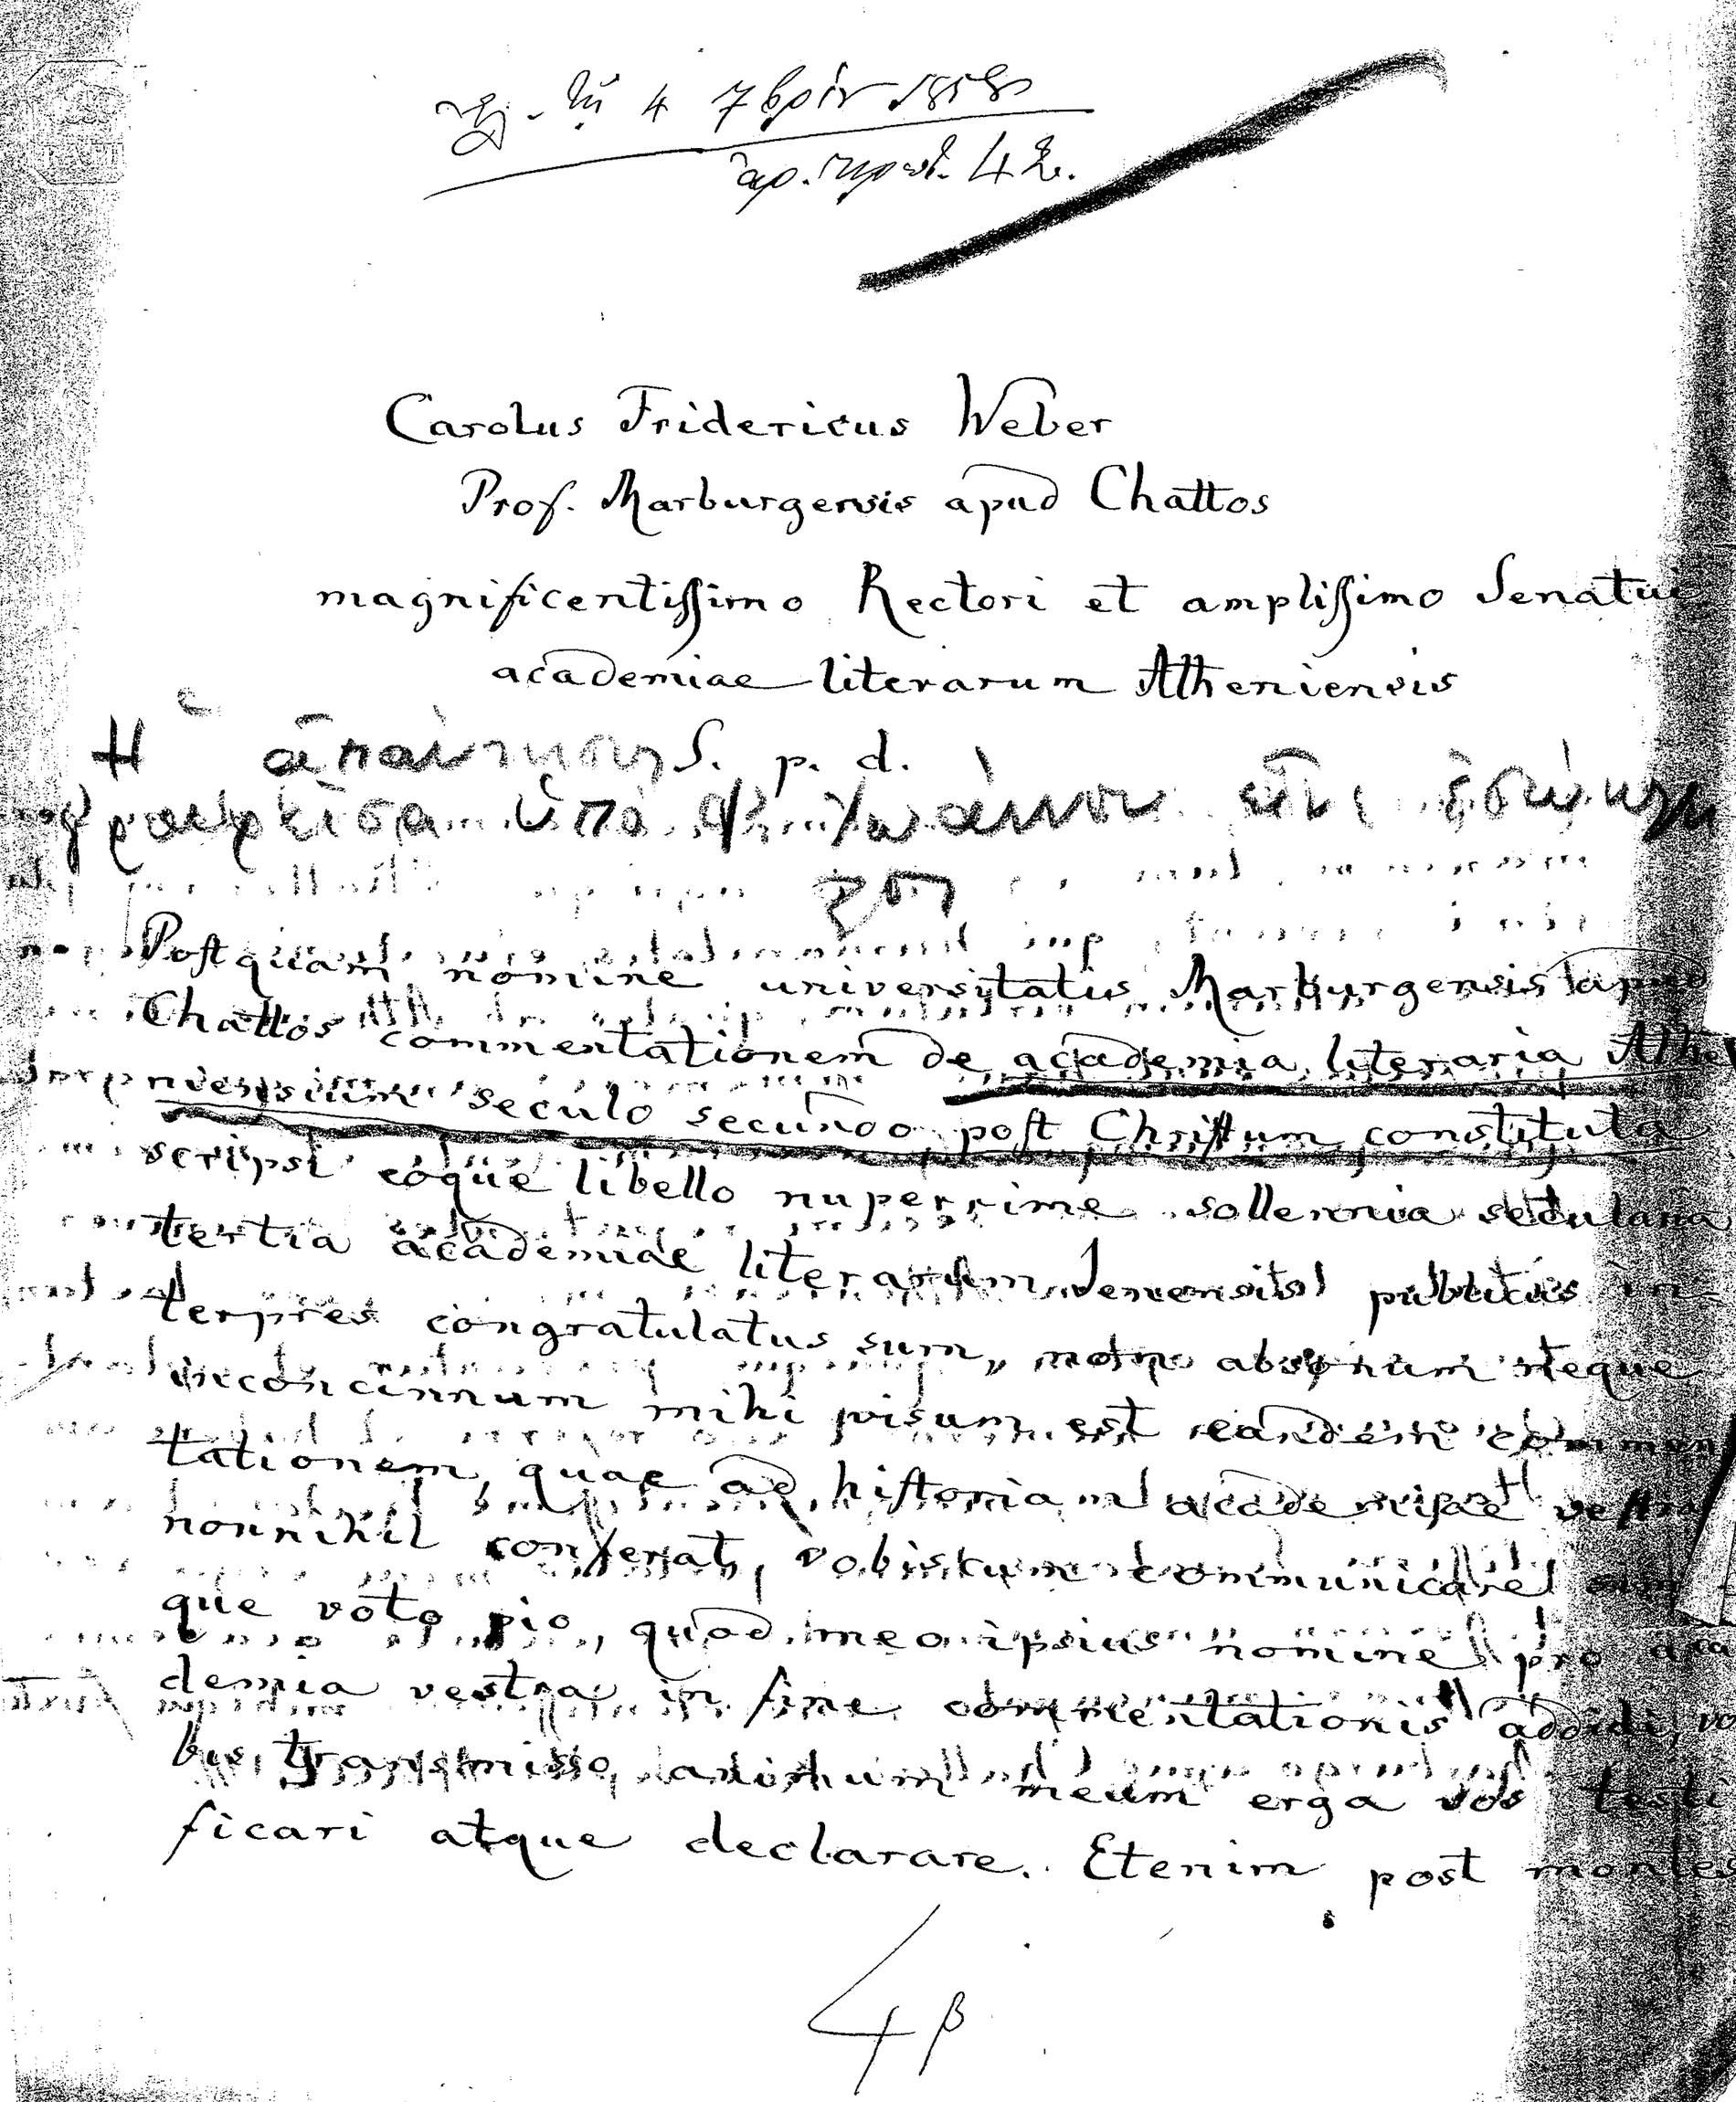 τῇ 4 7βρίου 1858
ἀρ. πρωτ. 42.
Carolus Fridericus Weber
Prof. Marburgensis apud Chattos
magnificentissimo Rectori et amplissimo Senatui
academiae literarum Atheniensis
S. p. d.
Ἡ ἀπάντησις
ὑπὸ Φ. Ἰωάννου
Postquam nomine universitatis Marburgensis apud
Chattos commentationem de academia literaria Athe
niensium seculo secundo post Christum constituta
scripsi eoque libello nuperrime sollemnia secularia
tertia academiae literarum Jenensis publicus in
terpres congratulatus sum, absonum neque
inconcinnum mihi visum est eandem commen
tationem, quae ad historiam academiae vestrae
nonnihil conferat, vobiscum communicare
que voto pio, quod meo ipsius nomine pro aca
demia vestra in fine commentationis addidi, vo
bis transmisso, animum meum erga vos testi
ficari atque declarare. Etenim post montes
4 β